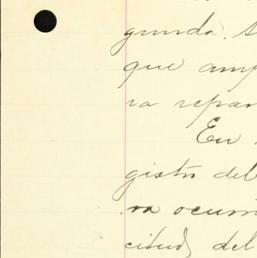 gunda. S
que amp
ra repar
En
gistro del
ra ocurri
citud, del